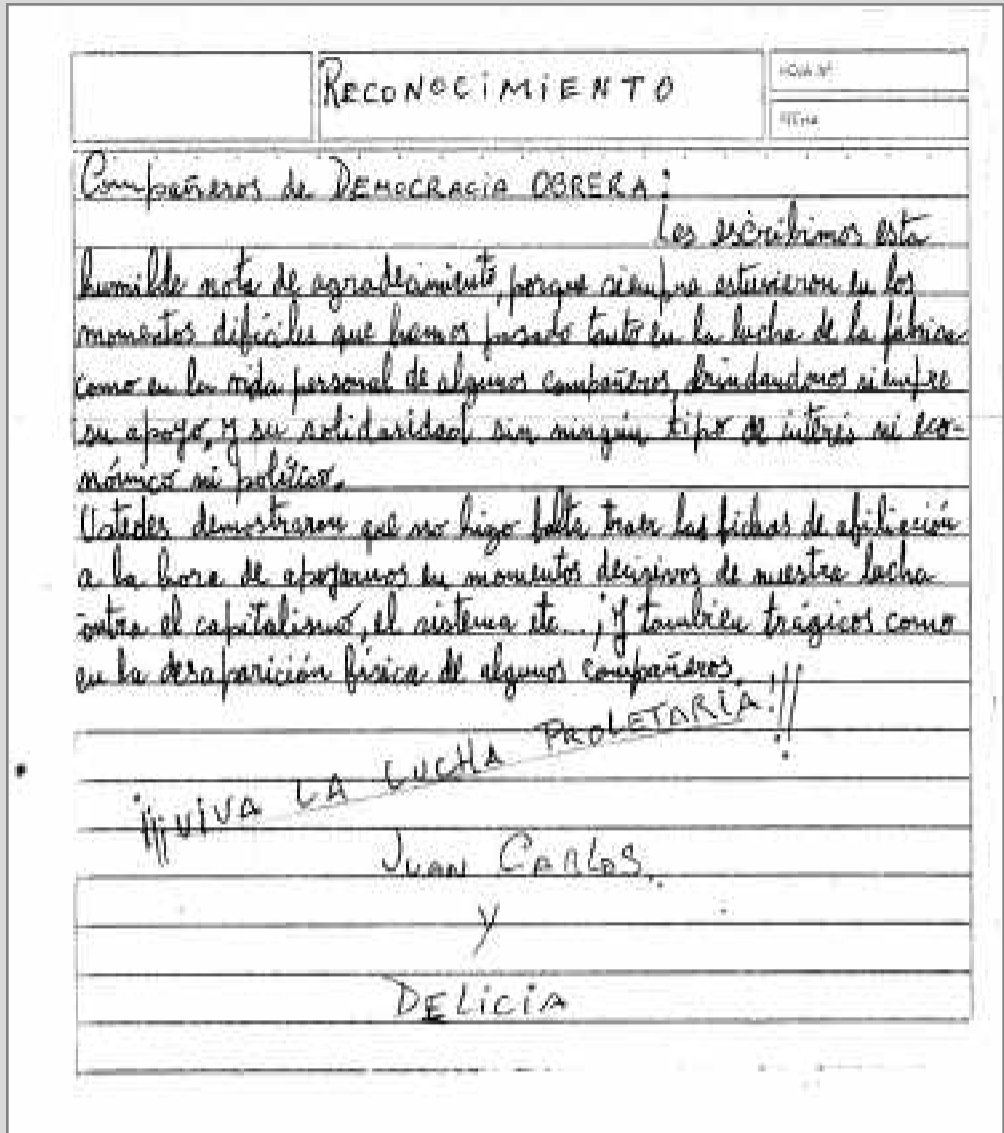 RECONOCIMIENTO
HOJA Nº
FECHA
Compañeros de DEMOCRACIA OBRERA:
Les escribimos esta
humilde nota de agradecimiento, porque siempre estuvieron en los
momentos difíciles que hemos pasado tanto en la lucha de la fábrica
como en la vida personal de algunos compañeros, brindandonos siempre
su apoyo, y su solidaridad sin ningún tipo de interés ni eco-
nómico ni político.
Ustedes demostraron que no hizo falta traer las fichas de afiliación
a la hora de apoyarnos en momentos decisivos de nuestra lucha
contra el capitalismo, el sistema etc..., y tambien trágicos como
en la desaparición física de algunos compañeros.
¡¡¡VIVA LA LUCHA PROLETARIA!!!
JUAN CARLOS
Y
DELICIA